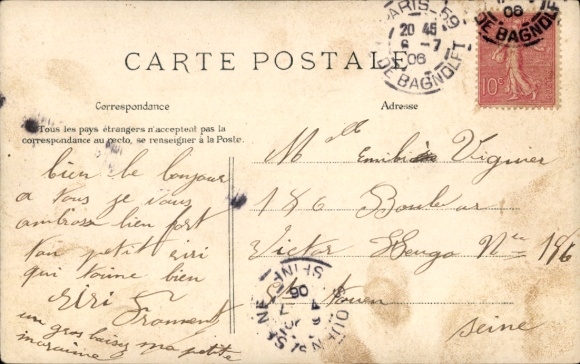 PARIS-59
20 45
6 -7
06
R. DE BAGNOLET
06
DE BAGNOLET
10c
CARTE POSTALE
Correspondance
Adresse
Tous les pays étrangers n'acceptent pas la
correspondance au recto, se renseigner à la Poste.
bien le bonjour
a vous je vous
ambrasse bien fort
ton petit riri
qui t'aime bien
Riri Froment
un gros baisez ma petite
maraine
Mlle Emilie Viguier
186 Boulevar
Victor Hugo Nro 186
St Ouen
Seine
ST OUEN
SEINE
06